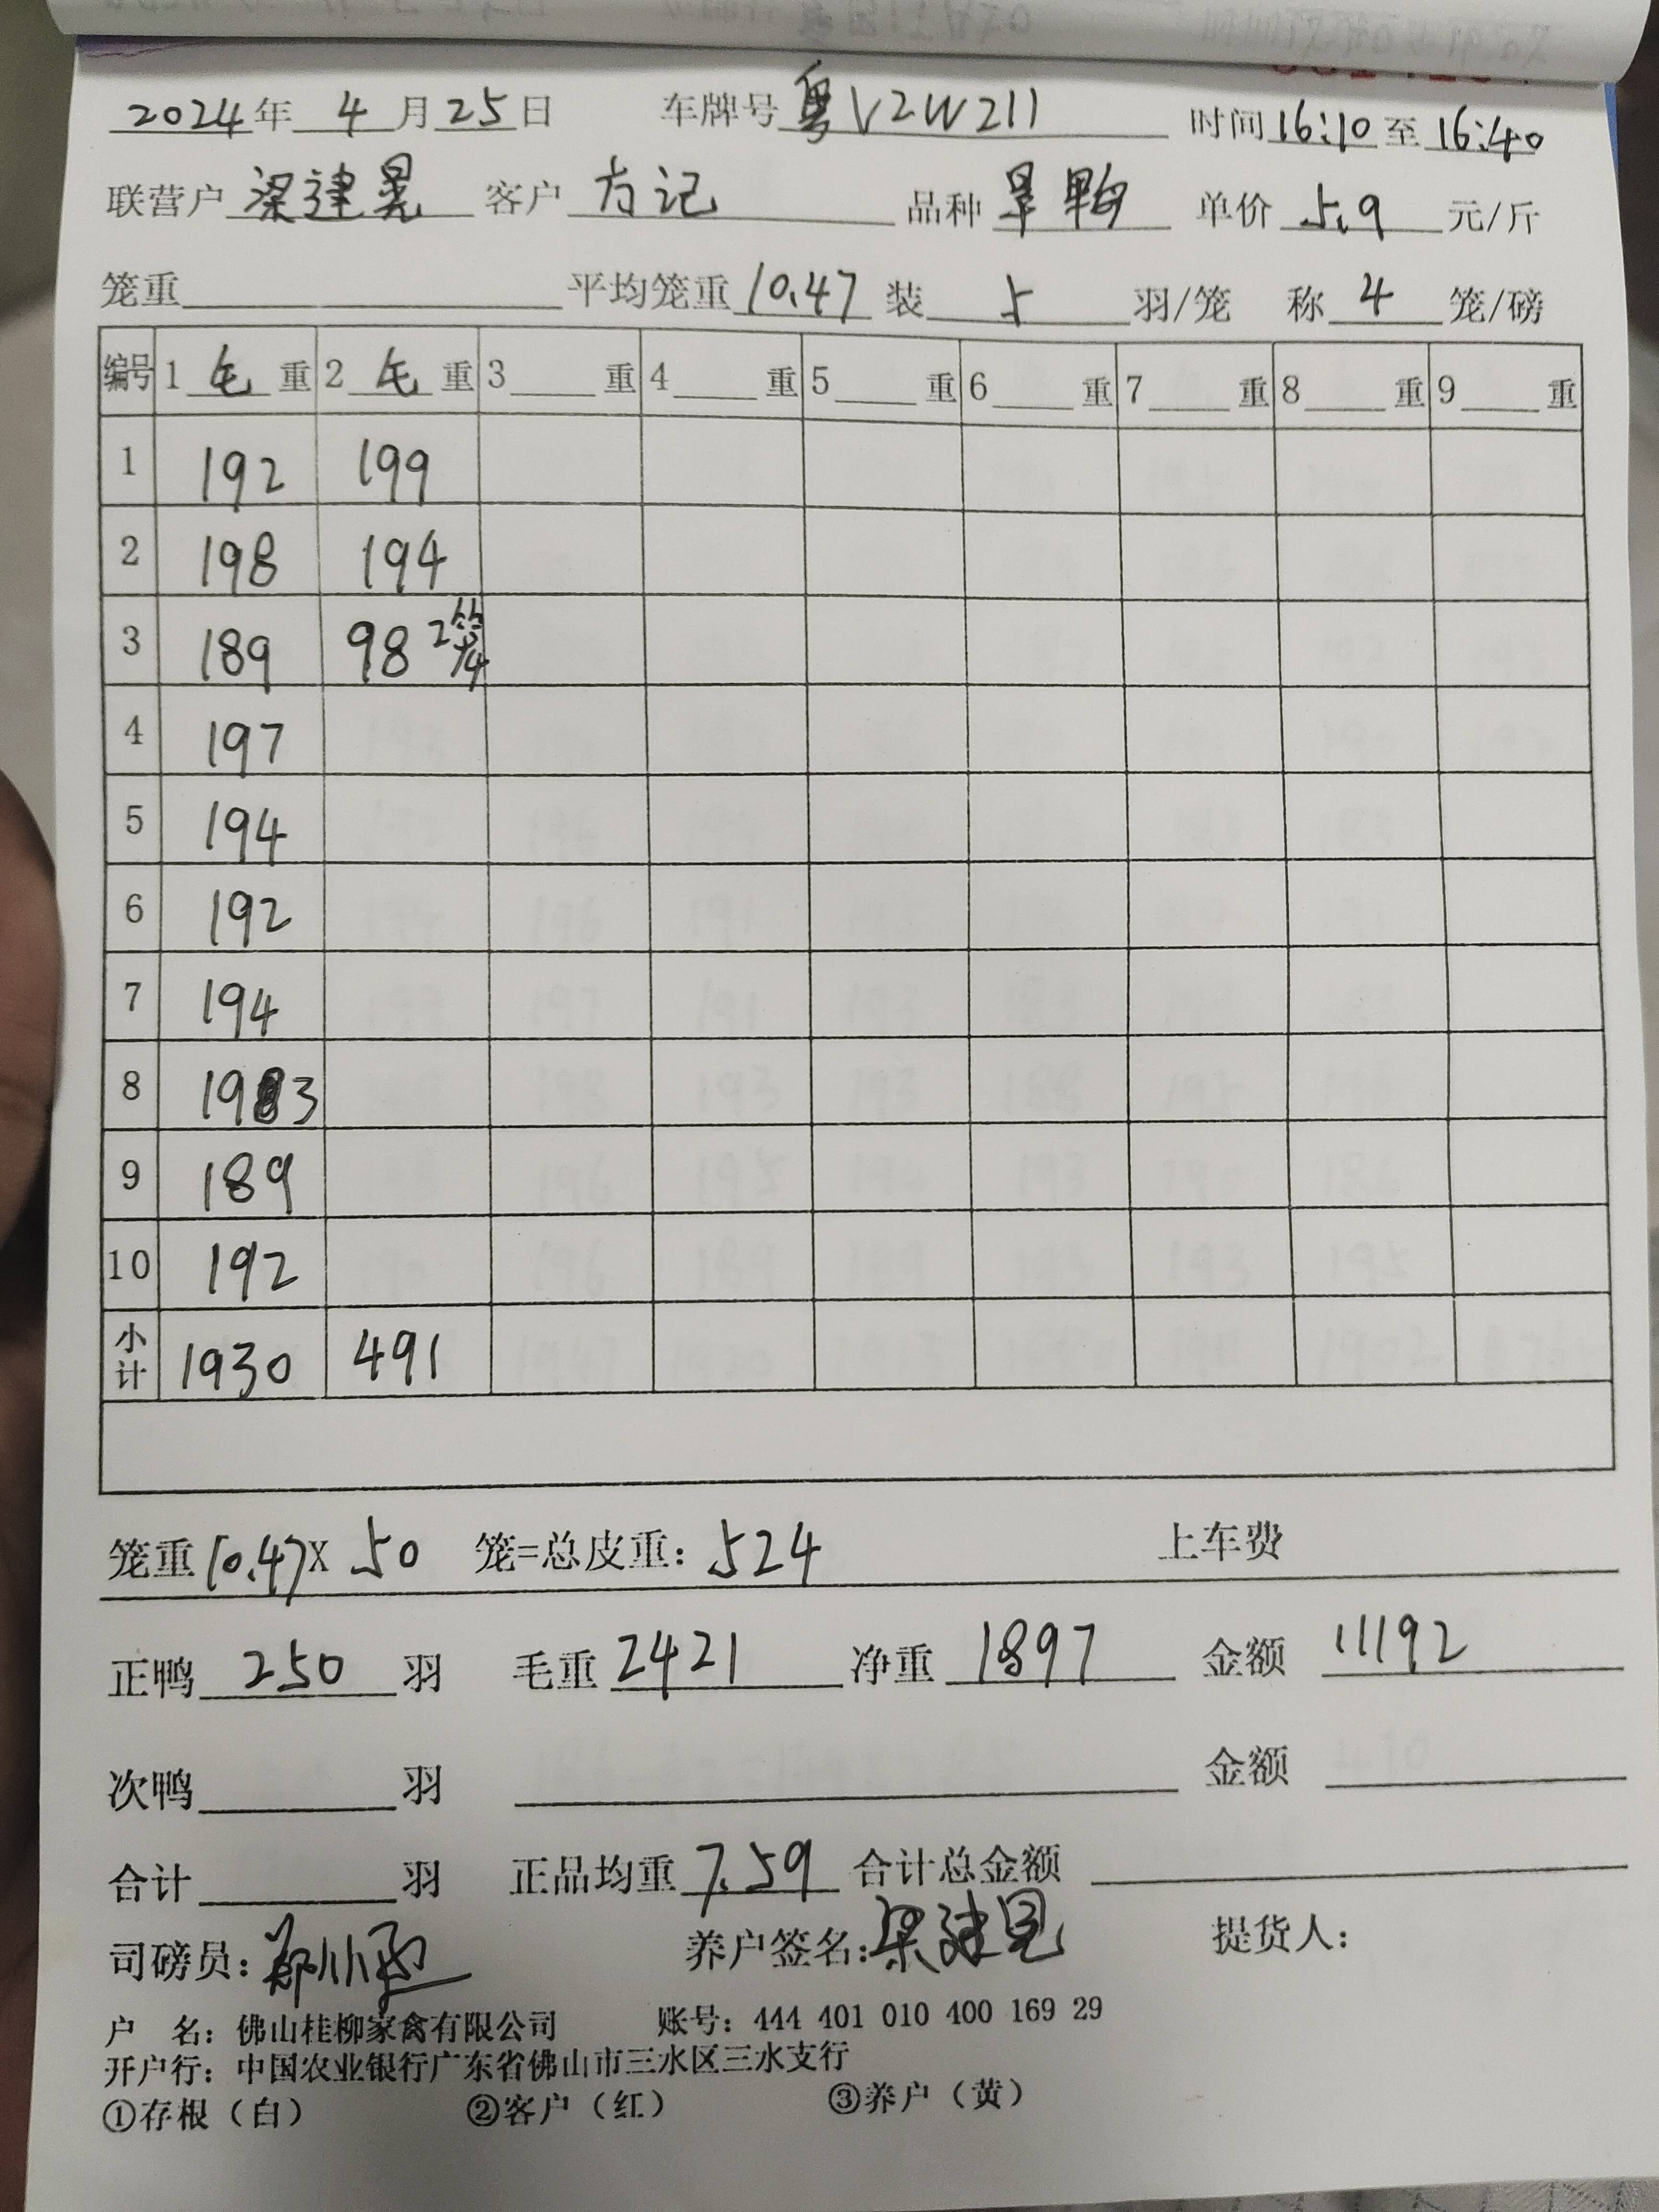 2024年 4 月 25 日 车牌号 粤V2W211 时间 16:10 至 16:40
联营户 梁建晃 客户 方记 品种 旱鸭 单价 5.9 元/斤
笼重 平均笼重 10.47 装 5 羽/笼 称 4 笼/磅
编号 1 毛 重 2 毛 重 3 重 4 重 5 重 6 重 7 重 8 重 9 重
1 192 199
2 198 194
3 189 98 2笼
4 197
5 194
6 192
7 194
8 193
9 189
10 192
小计 1930 491
笼重 10.47 X 50 笼=总皮重: 524 上车费
正鸭 250 羽 毛重 2421 净重 1897 金额 11192
次鸭 羽 金额
合计 羽 正品均重 7.59 合计总金额
司磅员: 养户签名: 梁建晃 提货人:
户 名: 佛山桂柳家禽有限公司 账号: 444 401 010 400 169 29
开户行: 中国农业银行广东省佛山市三水区三水支行
①存根（白） ②客户（红） ③养户（黄）